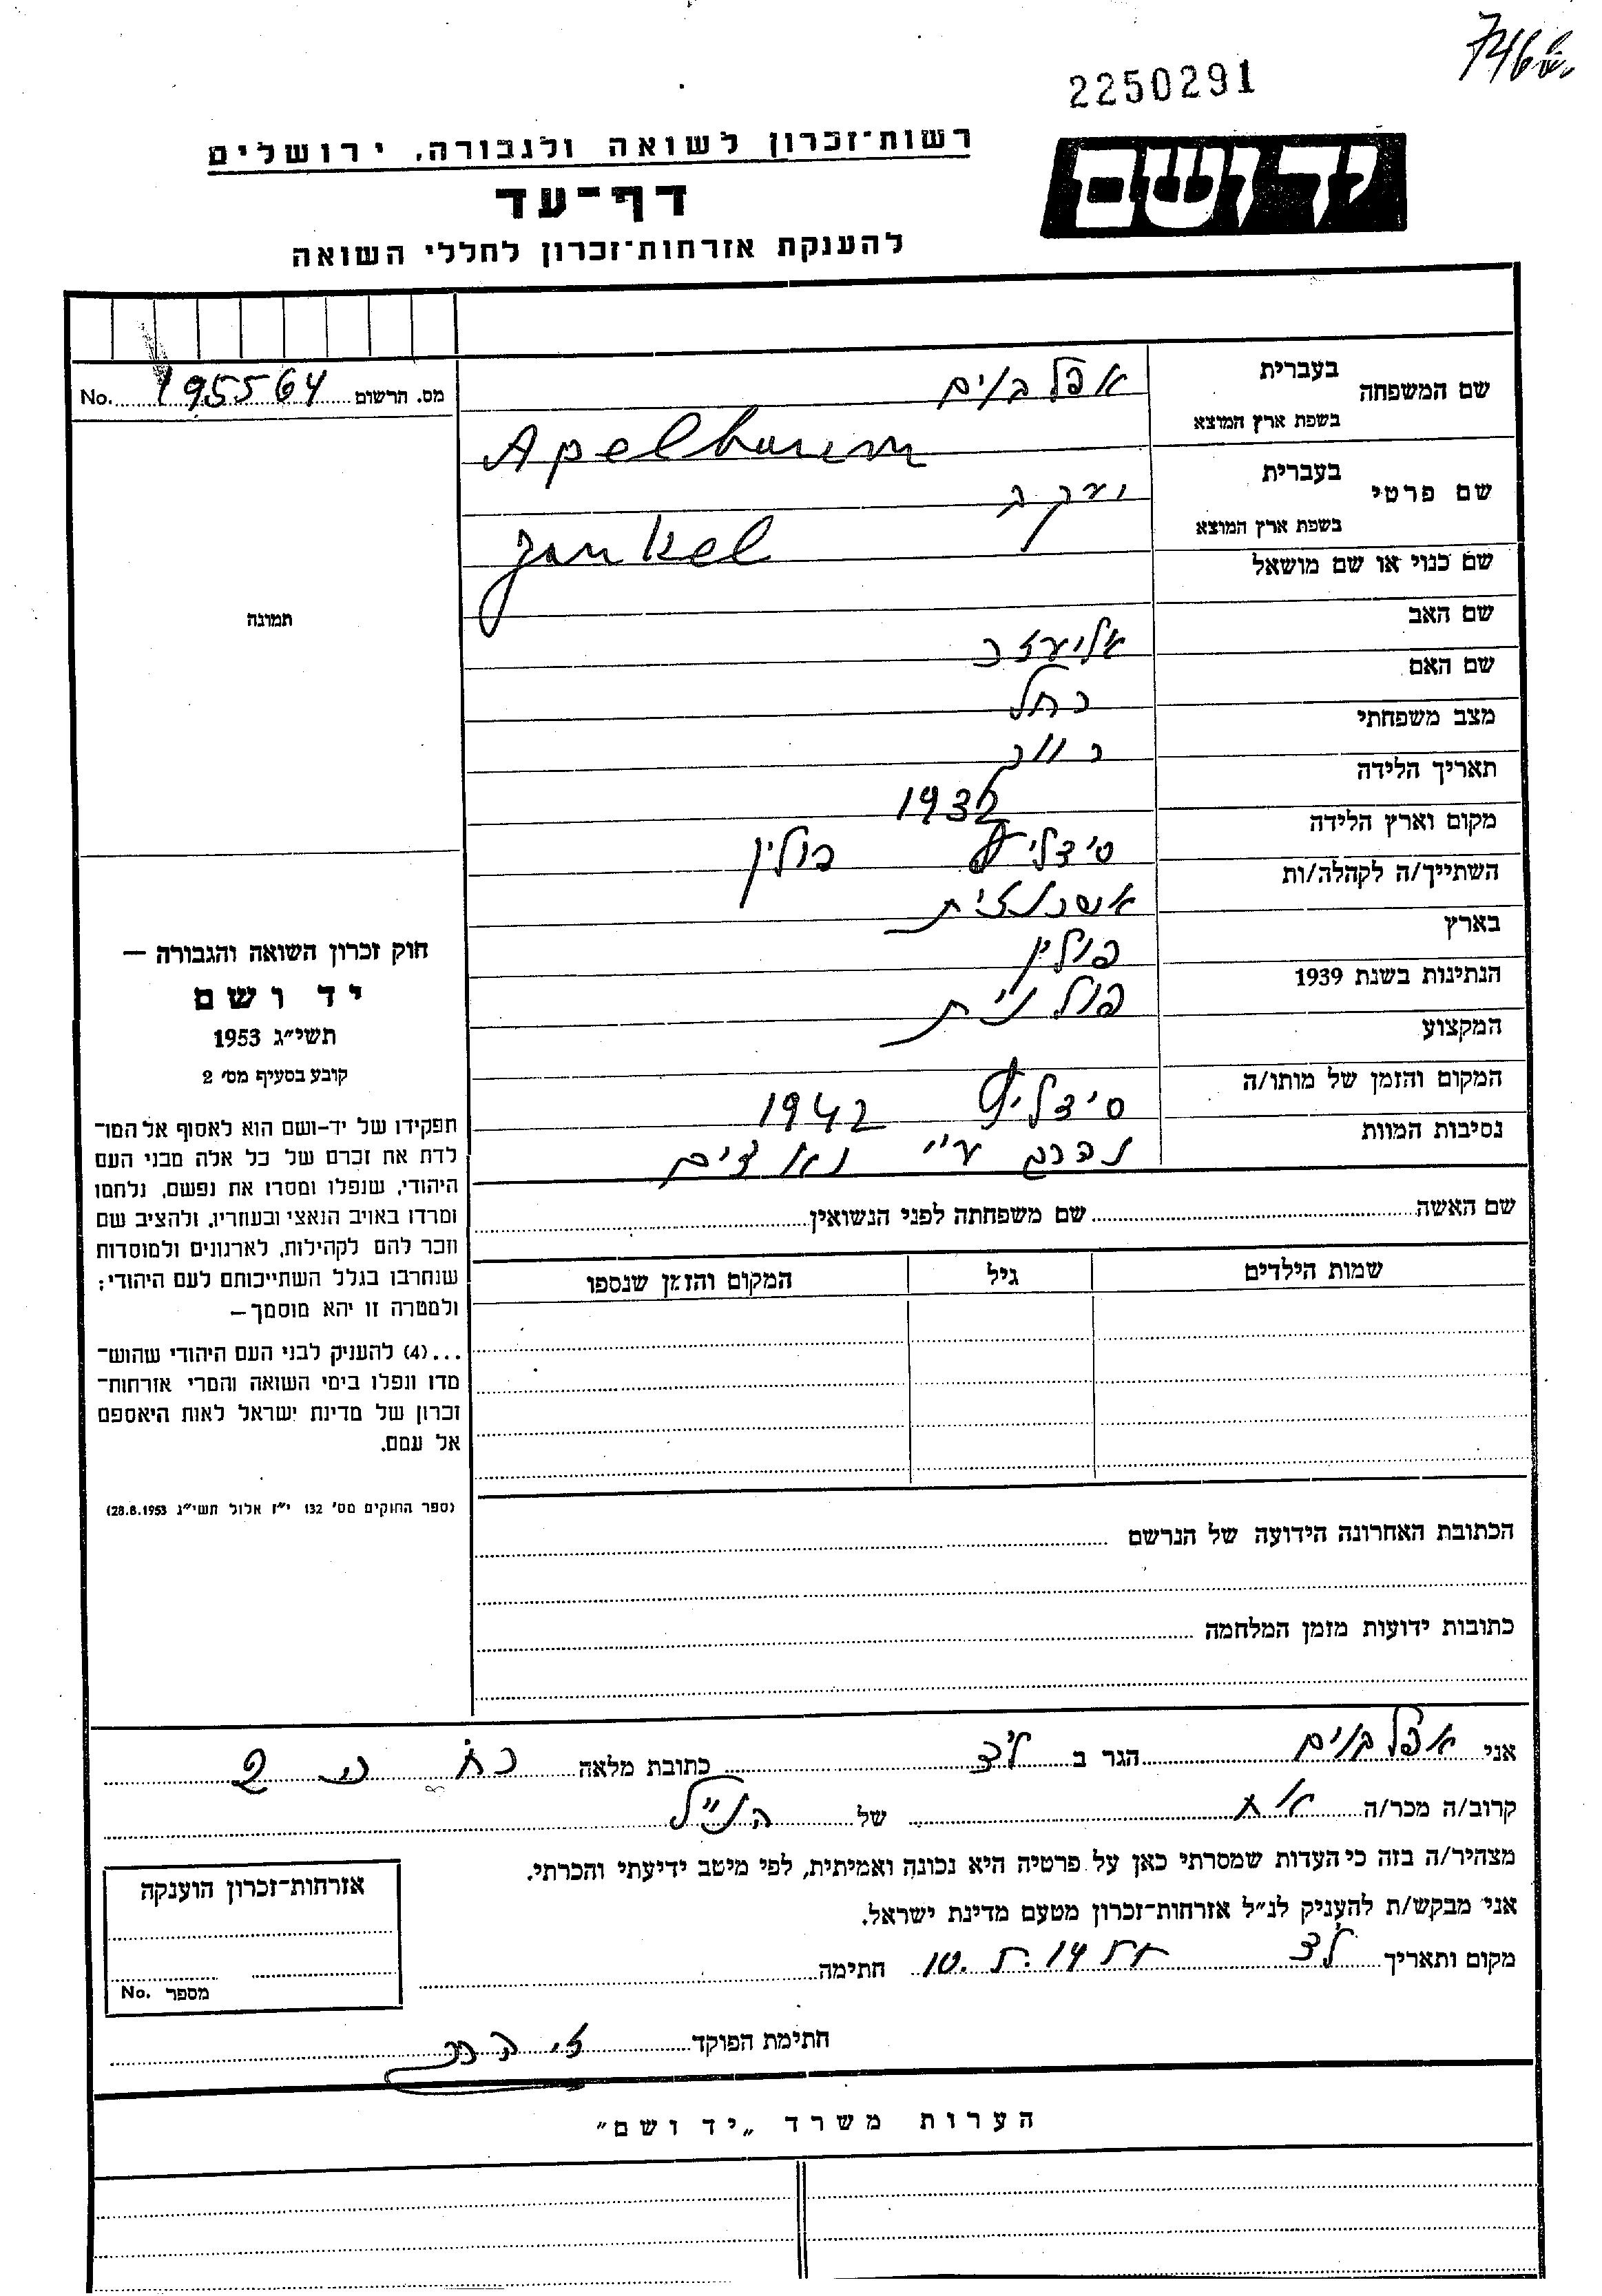 746
2250291
רשות־זכרון לשואה ולגבורה, ירושלים
יד ושם
דף־עד
להענקת אזרחות־זכרון לחללי השואה
מס. הרשום 195564 No.
שם המשפחה
בעברית
אפלבוים
בשפת ארץ המוצא
Apelbaum
שם פרטי
בעברית
יעקב
בשפת ארץ המוצא
Jankel
שם כנוי או שם מושאל
שם האב אליעזר
שם האם רחל
מצב משפחתי רווק
תאריך הלידה 1932
מקום וארץ הלידה פולין
השתייך/ה לקהלה/ות אשכנזית
בארץ פולין
הנתינות בשנת 1939 פולנית
המקצוע
המקום והזמן של מותו/ה 1942
נסיבות המוות נהרג ע״י נאצים
תמונה
חוק זכרון השואה והגבורה —
יד ושם
תשי״ג 1953
קובע בסעיף מס׳ 2
תפקידו של יד-ושם הוא לאסוף אל המו־
לדת את זכרם של כל אלה מבני העם
היהודי, שנפלו ומסרו את נפשם, נלחמו
ומרדו באויב הנאצי ובעוזריו, ולהציב שם
וזכר להם לקהילות, לארגונים ולמוסדות
שנחרבו בגלל השתייכותם לעם היהודי;
ולמטרה זו יהא מוסמך—
...(4) להעניק לבני העם היהודי שהוש־
מדו ונפלו בימי השואה והמרי אזרחות־
זכרון של מדינת ישראל לאות היאספם
אל עמם.
(ספר החוקים מס׳ 132 י״ז אלול תשי״ג 28.8.1953)
שם האשה שם משפחתה לפני הנשואין
שמות הילדים גיל המקום והזמן שנספו
הכתובת האחרונה הידועה של הנרשם
כתובות ידועות מזמן המלחמה
אני אפלבוים הגר ב כתובת מלאה
קרוב/ה מכר/ה אח של הנ״ל
מצהיר/ה בזה כי העדות שמסרתי כאן על פרטיה היא נכונה ואמיתית, לפי מיטב ידיעתי והכרתי.
אני מבקש/ת להעניק לנ״ל אזרחות־זכרון מטעם מדינת ישראל.
מקום ותאריך חתימה
אזרחות־זכרון הוענקה
מספר No.
חתימת הפוקד
הערות משרד „יד ושם״